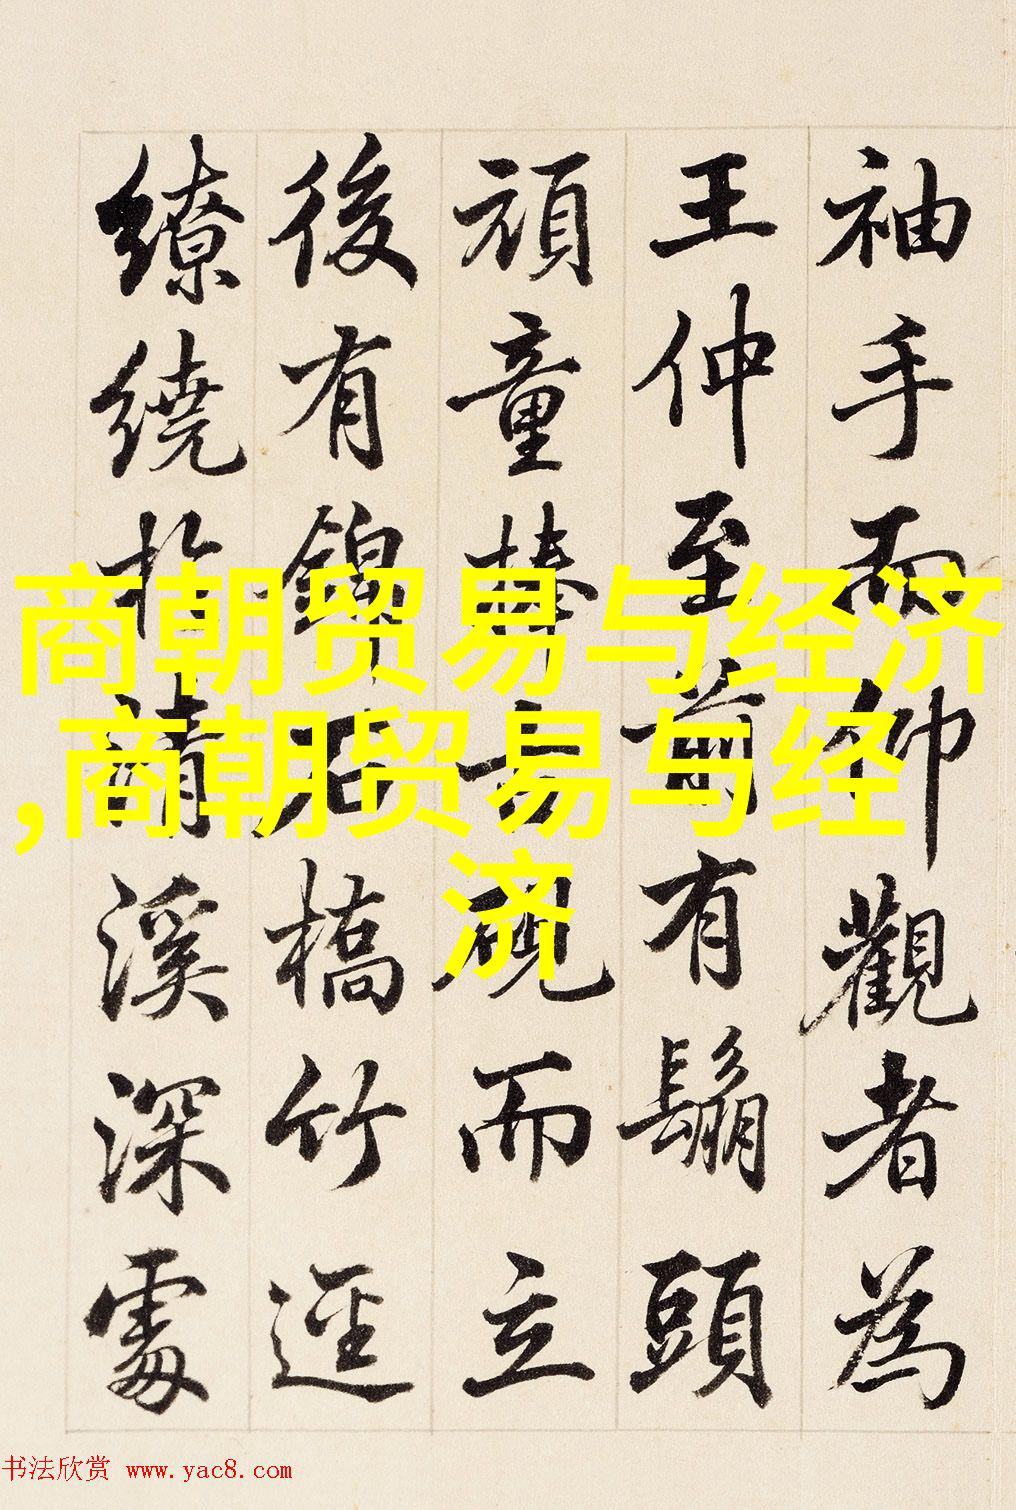 袖手而仰觀者為
王仲至前有鬅頭
頑童捧古硯而立
後有錦石橋竹逕
繚繞於清溪深處
商朝贸易与经济
,商朝贸易与经
济
书法欣赏 www.yac8.com